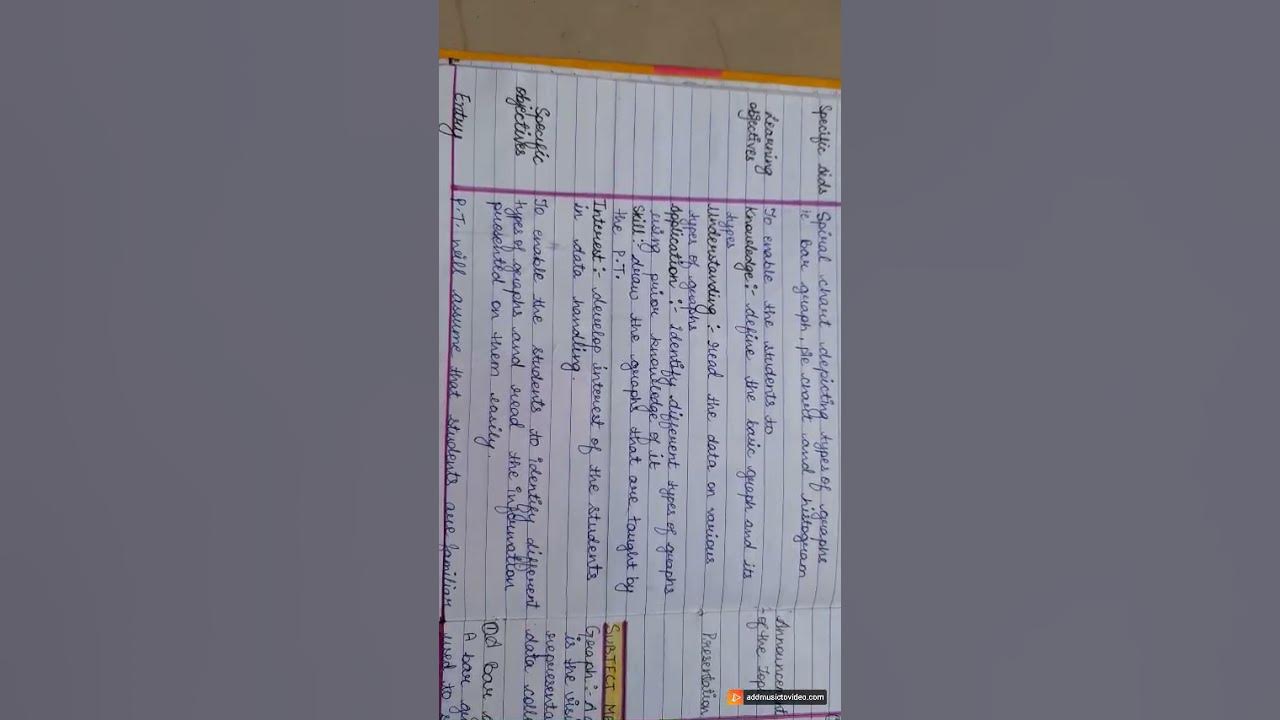 Specific Aids
Spiral chart depicting types of graphs
ie' Bar graph, pie chart and histogram
Learning
objectives
To enable the students to
Knowledge:- define the basic graph and its
types
Understanding:- read the data on various
types of graphs
Application:- identify different types of graphs
using prior knowledge of it
Skill:- draw the graphs that are taught by
the P.T.
Interest:- develop interest of the students
in data handling.
Specific
objectives
To enable the students to identify different
types of graphs and read the information
presented on them easily.
Entry
P.T. will assume that students are familiar
Announcement
of the Top
Presentation
SUBJECT MA
Graph:- A
is the vis
representa
data coll
A bar g
used to
addmusictovideo.com